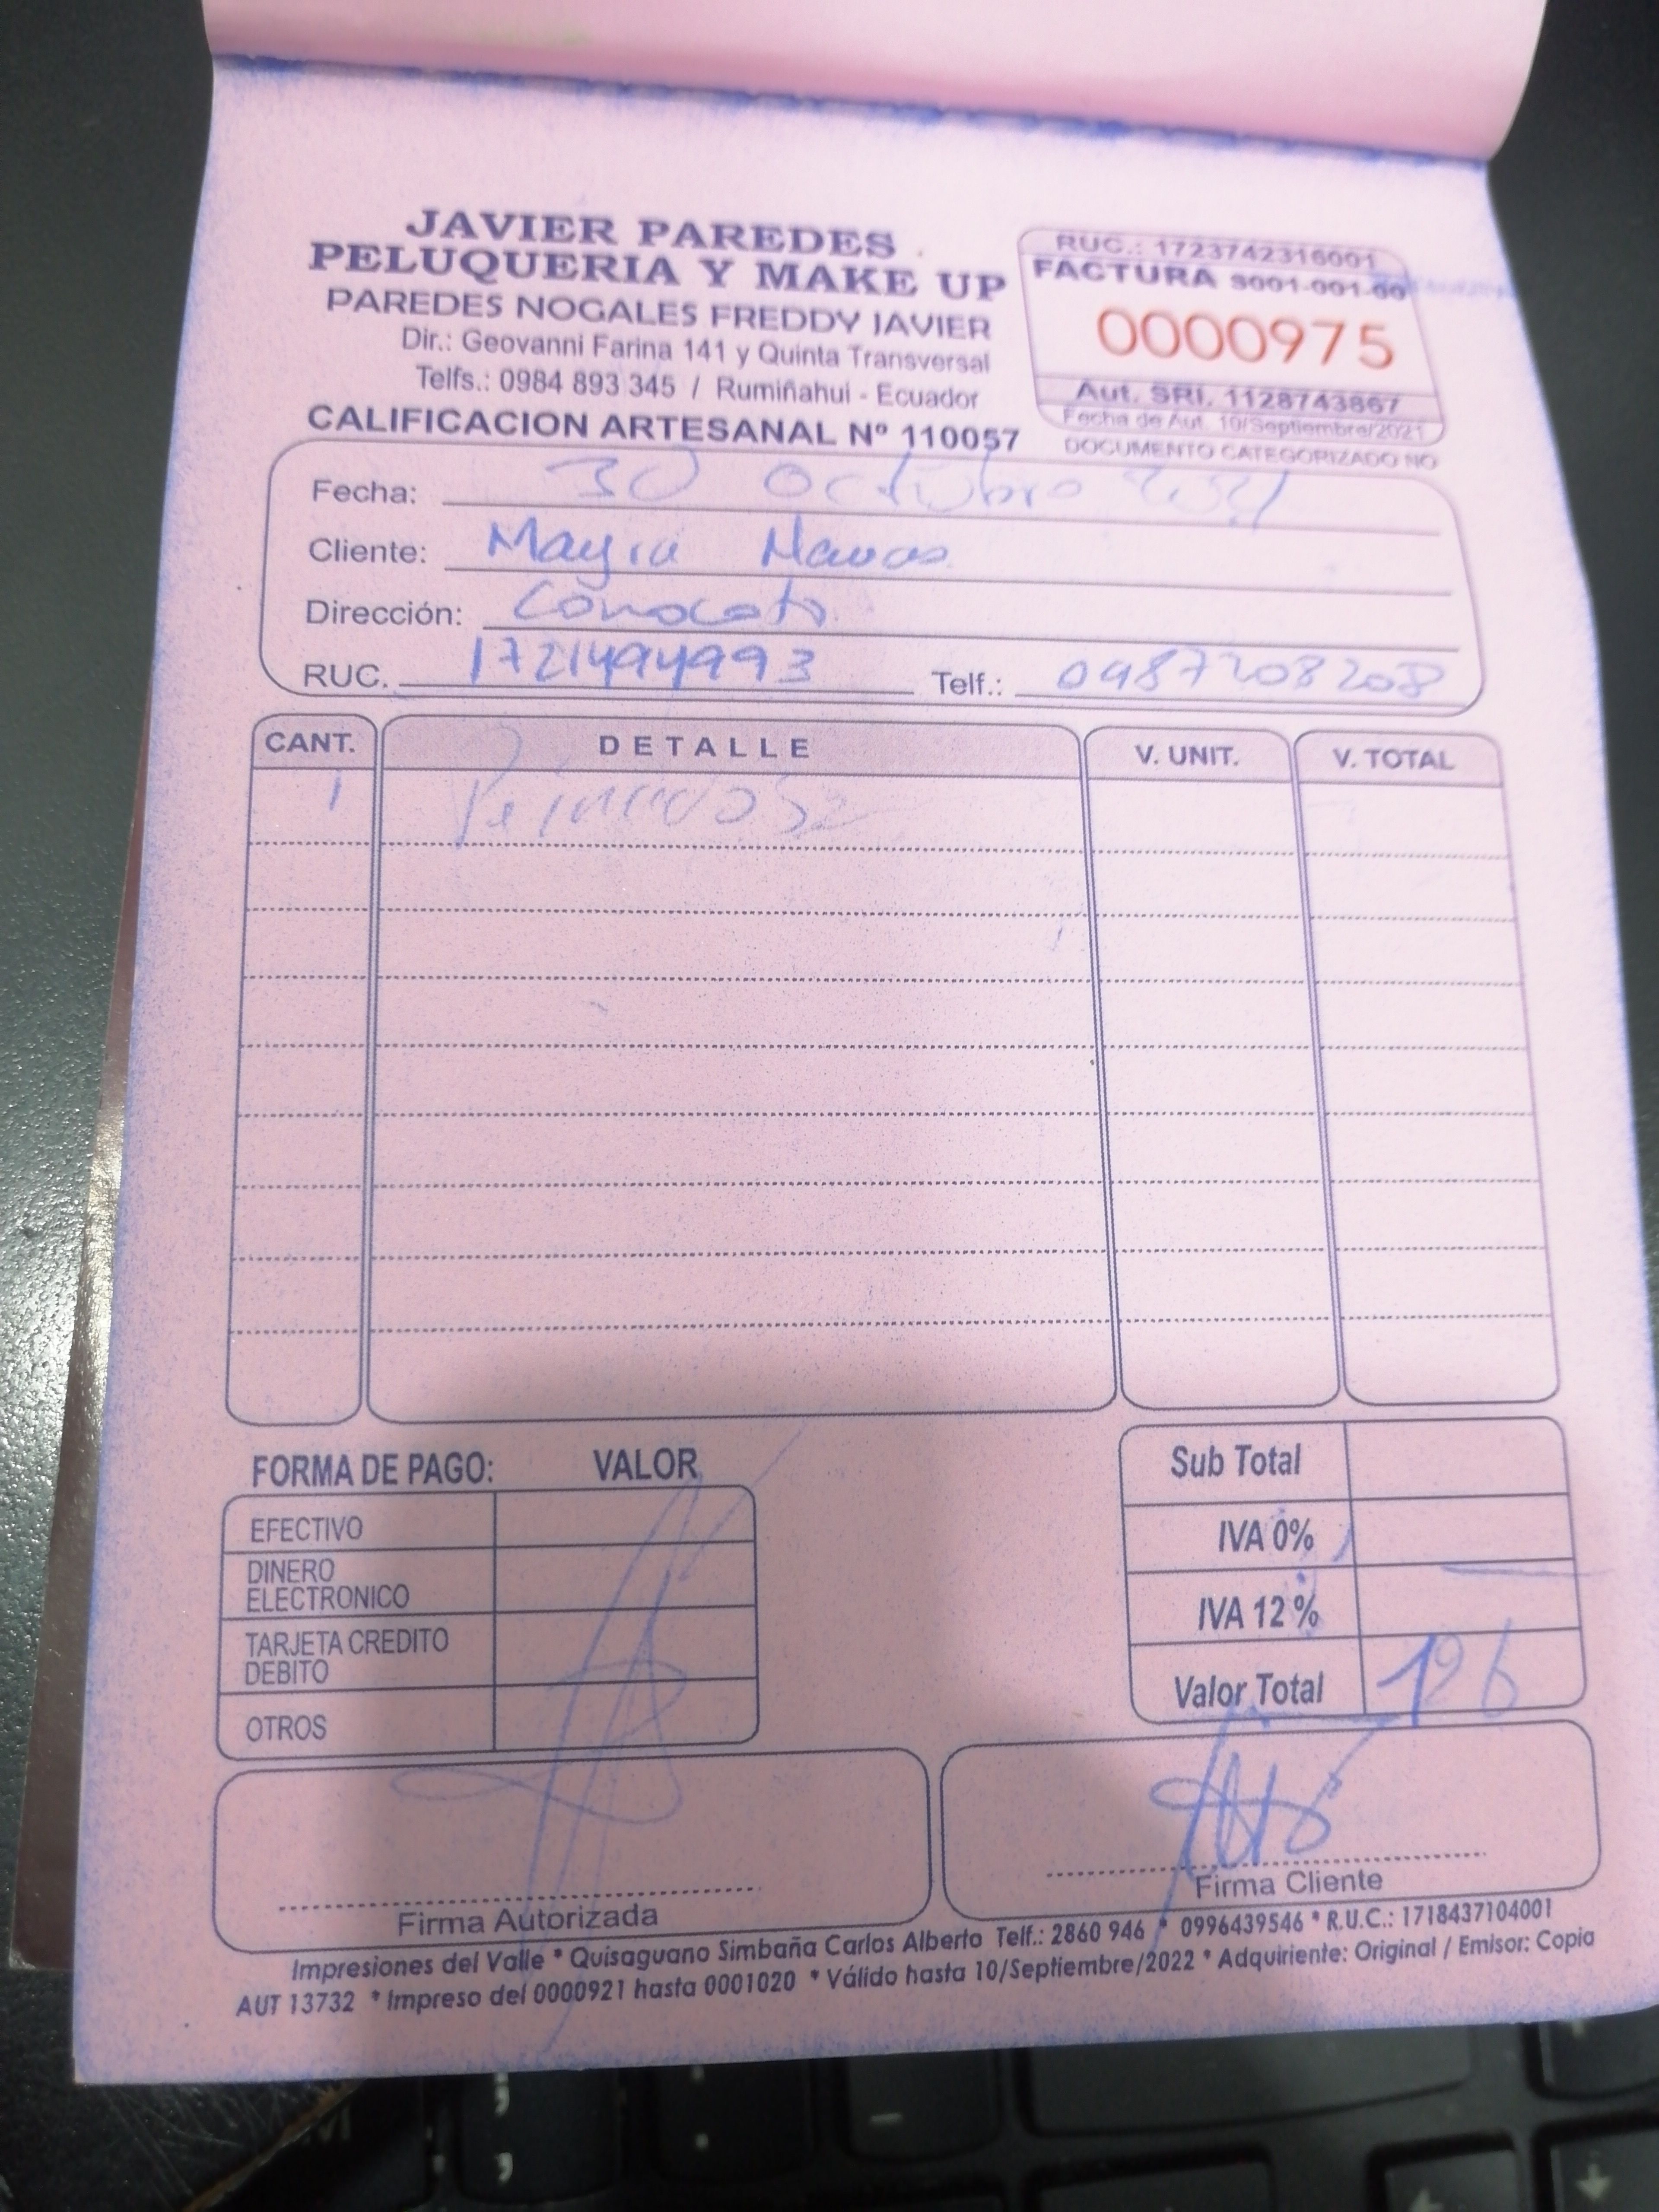 JAVIER PAREDES
PELUQUERIA Y MAKE UP
PAREDES NOGALES FREDDY JAVIER
Dir.: Geovanni Farina 141 y Quinta Transversal
Telfs.: 0984 893 345 / Rumiñahui - Ecuador
CALIFICACION ARTESANAL Nº 110057
RUC.: 1723742316001
FACTURA S001-001-00
0000975
Aut. SRI. 1128743867
Fecha de Aut. 10/Septiembre/2021
DOCUMENTO CATEGORIZADO NO
Fecha: 30 Octubre 2021
Cliente: Mayra Navas
Dirección: Conocoto
RUC. 1721494993 Telf.: 0987208208
CANT. DETALLE V. UNIT. V. TOTAL
1
FORMA DE PAGO: VALOR
EFECTIVO
DINERO
ELECTRONICO
TARJETA CREDITO
DEBITO
OTROS
Sub Total
IVA 0%
IVA 12 %
Valor Total 126
Firma Autorizada
Firma Cliente
Impresiones del Valle * Quisaguano Simbaña Carlos Alberto Telf.: 2860 946 * 0996439546 * R.U.C.: 1718437104001
AUT 13732 * Impreso del 0000921 hasta 0001020 * Válido hasta 10/Septiembre/2022 * Adquiriente: Original / Emisor: Copia